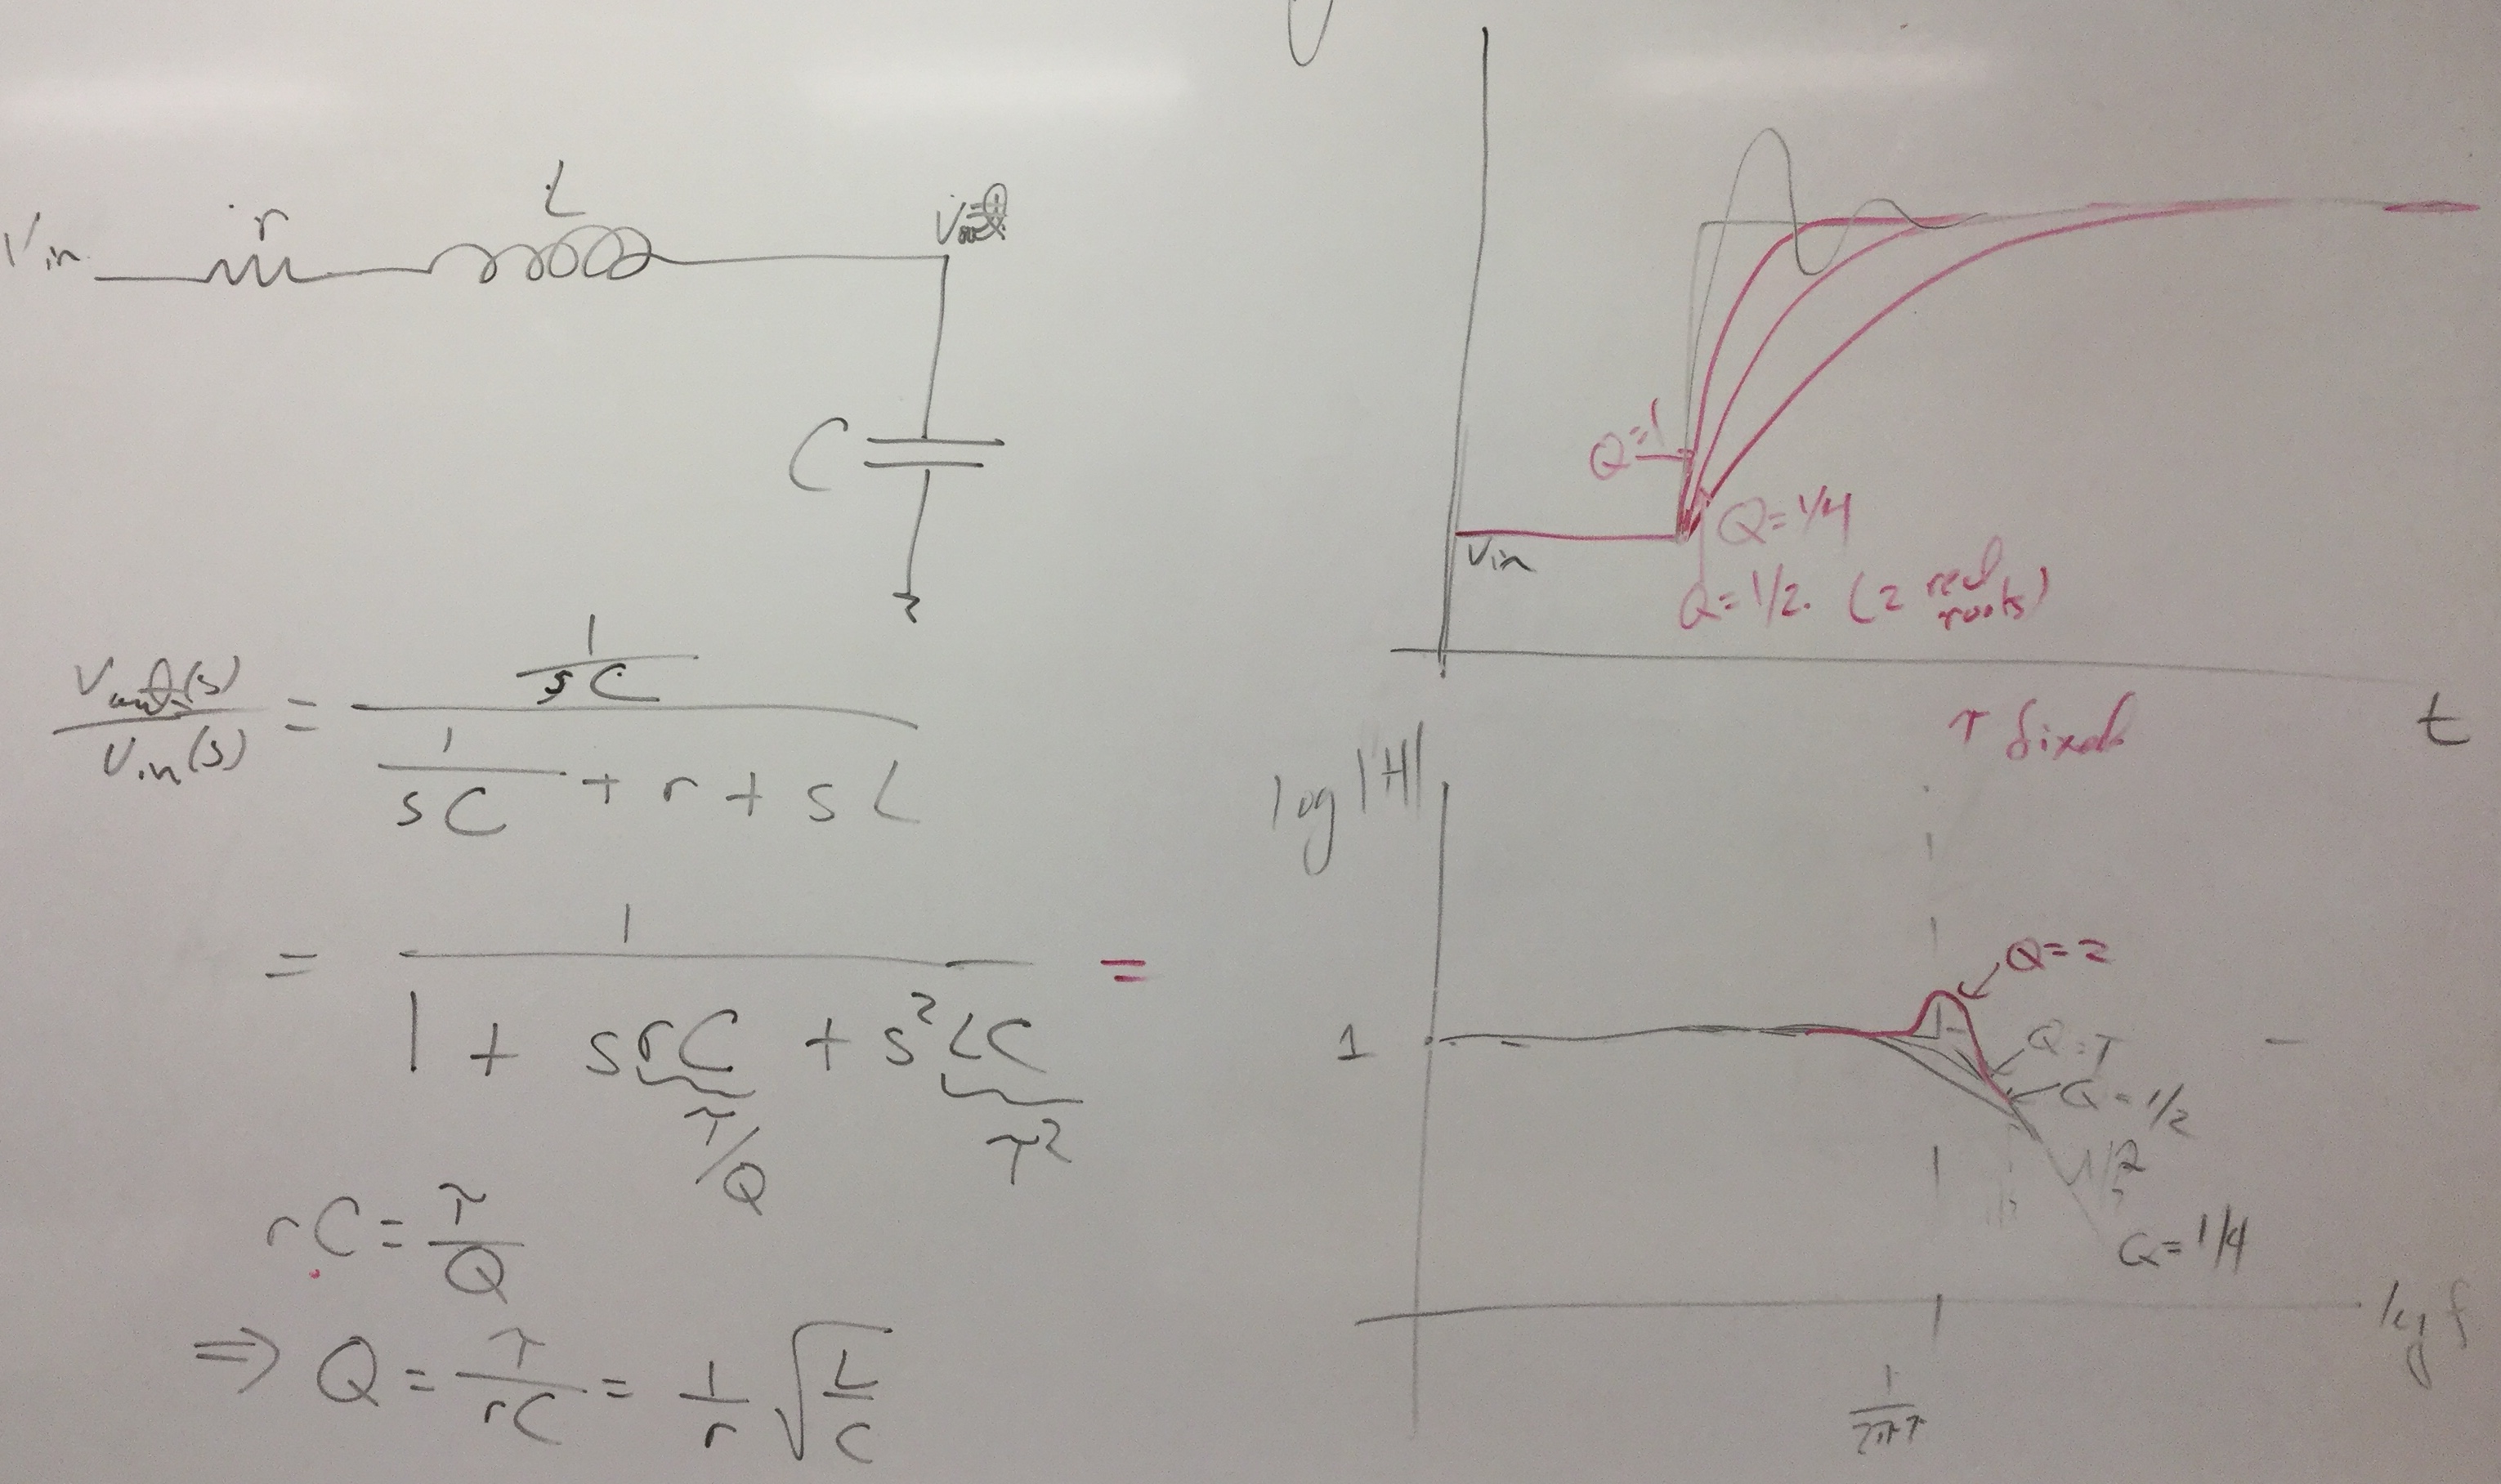 L
r
Vin
Vout
C
Vout(s) / Vin(s) = (1/sC) / (1/sC + r + sL)
= 1 / (1 + srC + s²LC) =
τ/Q τ²
rC = τ/Q
⇒ Q = τ/rC = 1/r √(L/C)
Q=1
Q=1/4
Vin
Q=1/2. (2 real roots)
τ fixed
t
log |H|
Q=2
1
Q=1
Q=1/2
Q=1/4
log f
1/2πτ